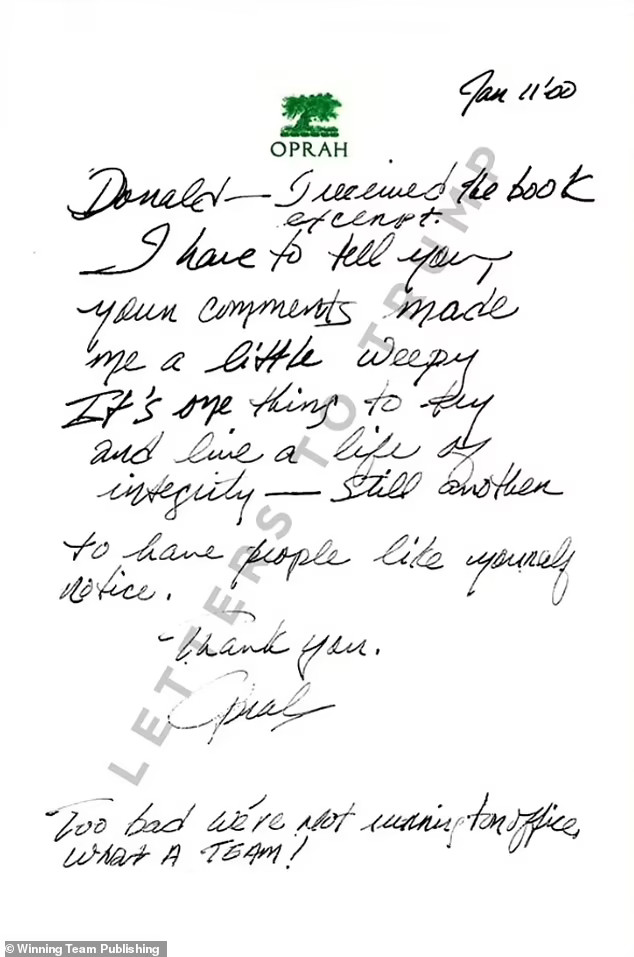 Jan 11'00
OPRAH
Donald — I received the book
excerpt.
I have to tell you,
your comments made
me a little weepy
It's one thing to try
and live a life of
integrity — still another
to have people like yourself
notice.
Thank you.
Oprah
Too bad we're not running for office,
WHAT A TEAM!
LETTERS TO TRUMP
© Winning Team Publishing